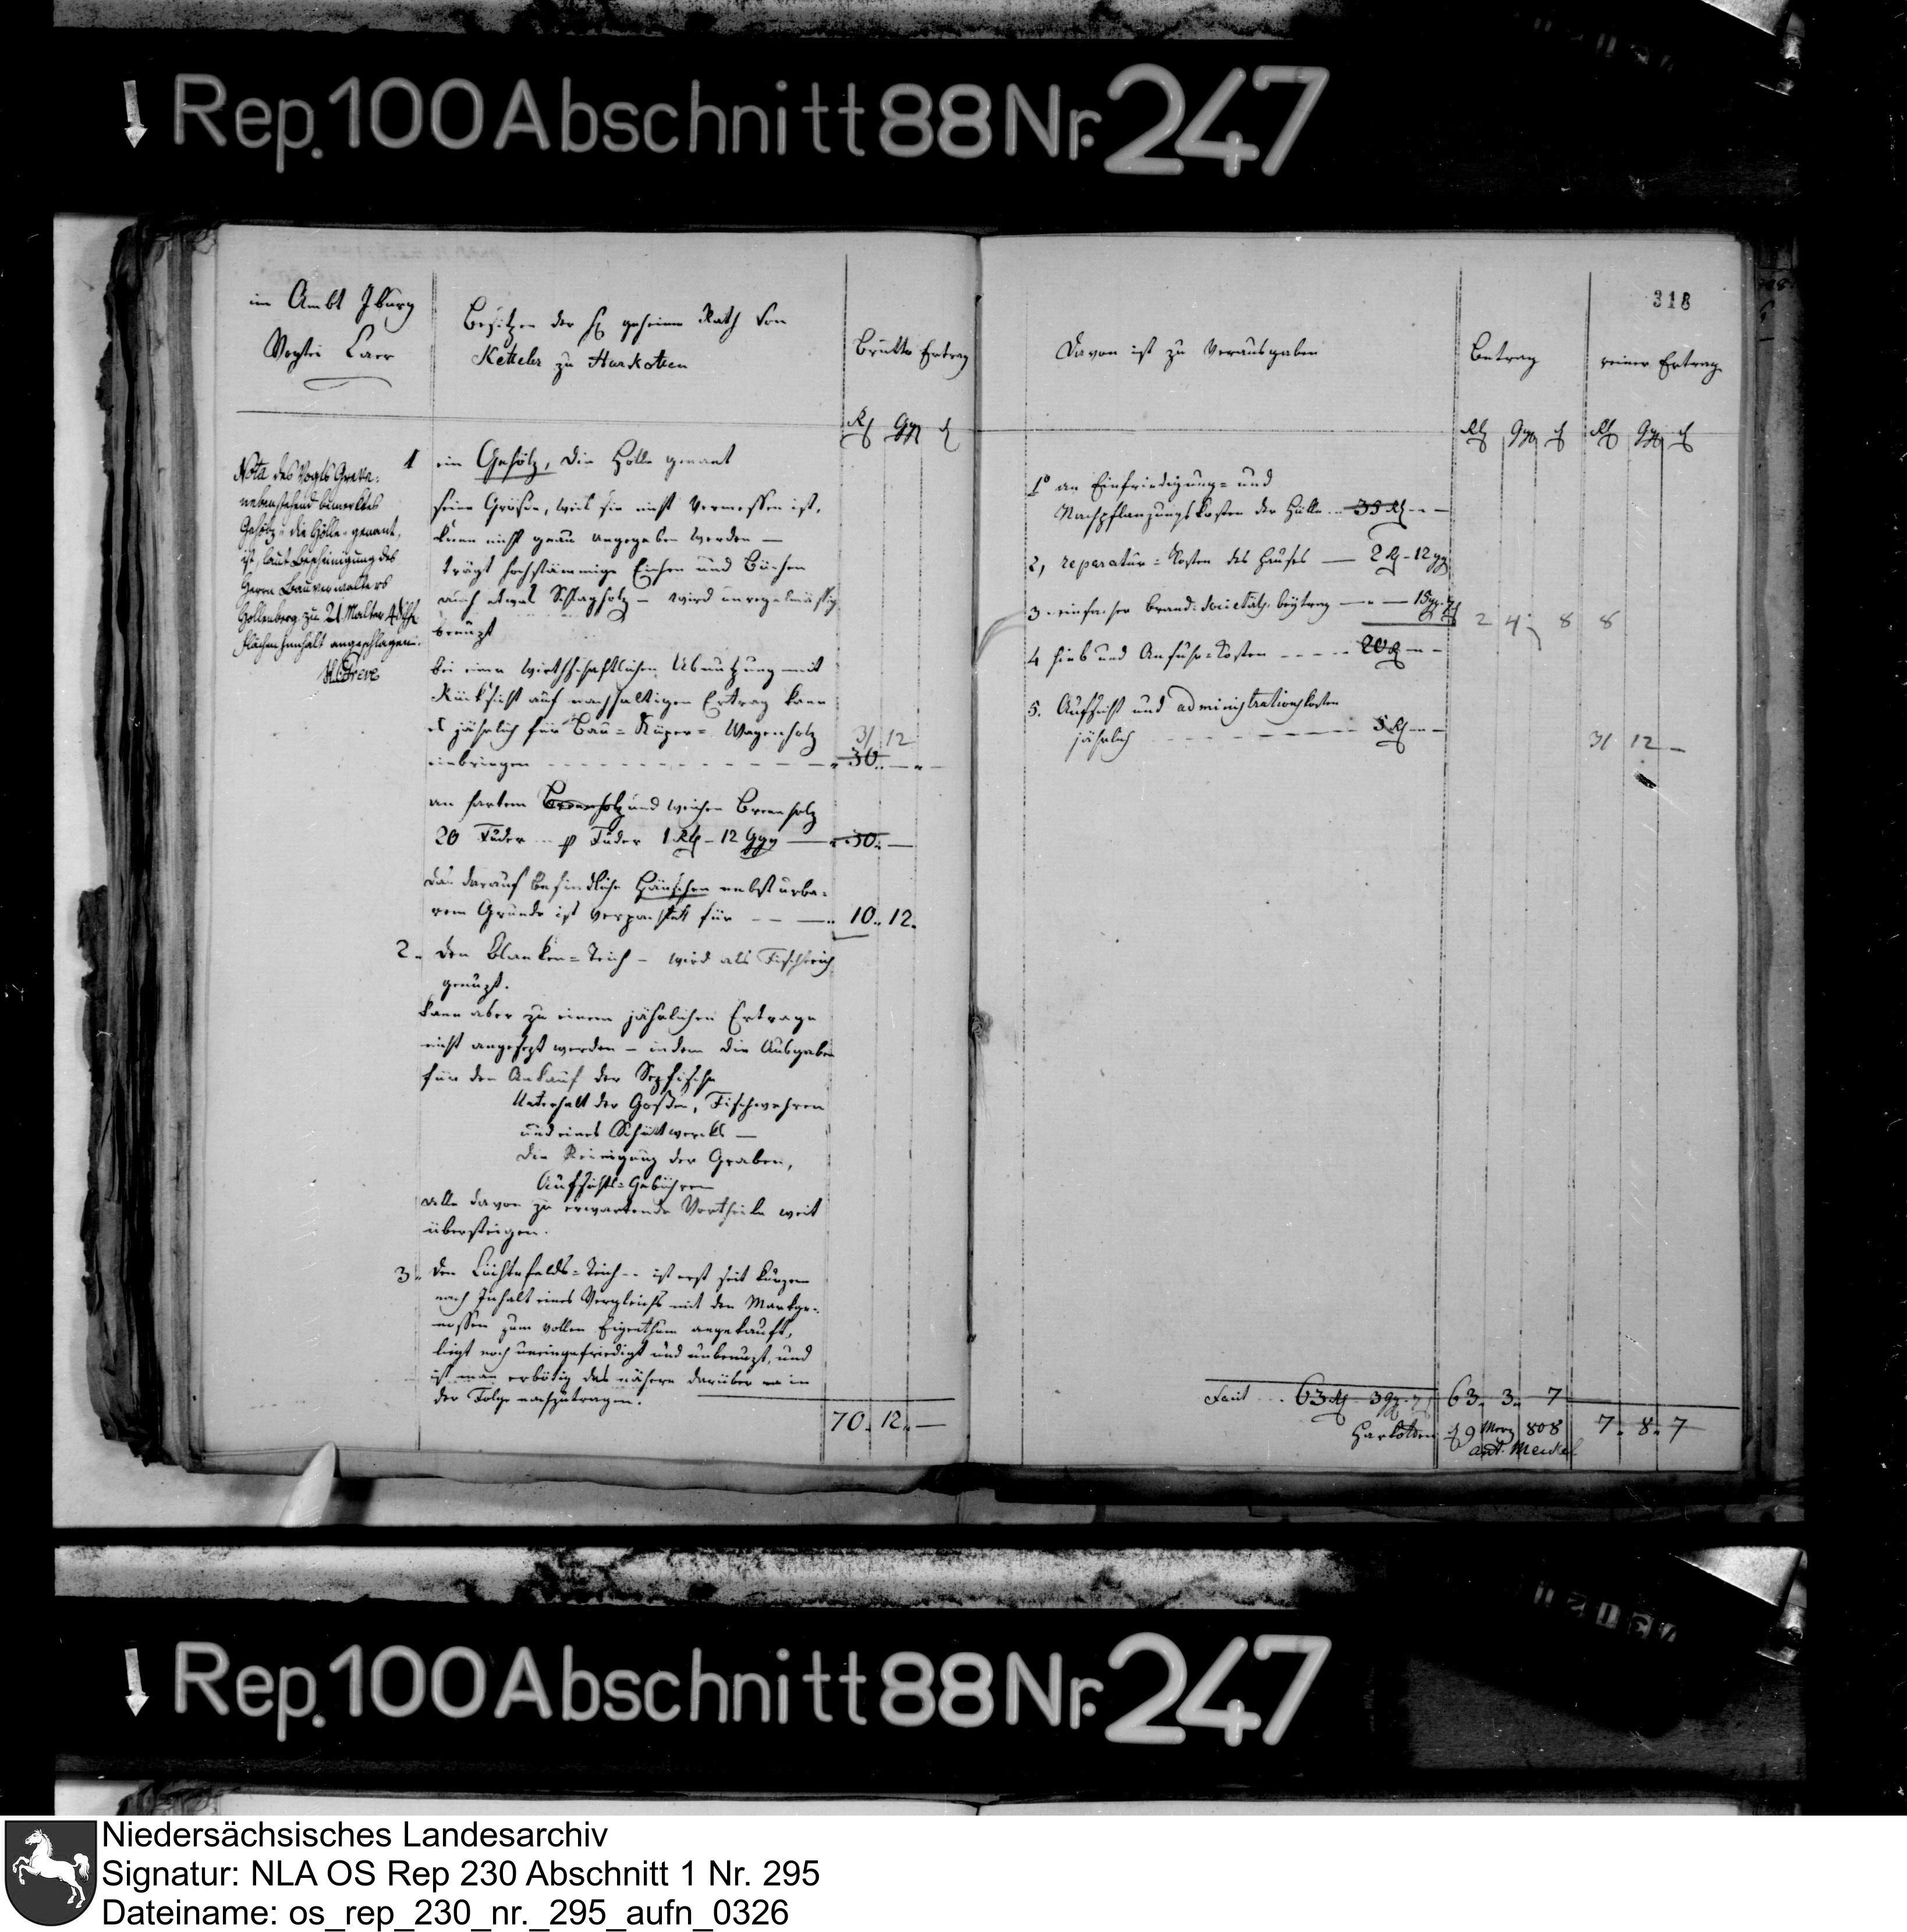 Rep. 100 Abschnitt 88 Nr. 247
im Ambt Iburg
Vogtei Laer
Besitzer der H geheime Rath von
Ketteler zu Harkotten
Brutto Ertrag
Rth Ggr d
Nota des Vogts Greve:
nebenstehend bemerktes
Gehölz "die Hölle" genant,
ist, laut Bescheinigung des
Herrn Bauverwalters
Hollenberg zu 21 Malter 4 Schfl.
Flächen Innhalt angeschlagen.
Greve
1 ein Gehölz, die Hölle genant
seine Größe, weil sie nicht vermessen ist,
kann nicht genau angegeben werden —
trägt hochstämmige Eichen und Büchen
auch etwas Schlagholz - wird unregelmäßig
benuzt
bei einer wirthschaftlichen Abnutzung mit
Rücksicht auf nachhaltigen Ertrag kann
es jährlich für Bau- Küper- Wagenholz 31 12
einbringen 30
an hartem Brenholz und weichen Brenholz
20 Fuder p Fuder 1 Rth - 12 Ggr 30
Das darauf befindliche Häuschen nebst urba-
rem Grunde ist verpachtet für 10 12
2. Den Blanken-Teich - wird als Fischteich
genuzt.
kann aber zu einem jährlichen Ertrage
nicht angesezt werden - indem die Ausgaben
für den Ankauf der Sezfische
Unterhalt der Goßen, Fischwehren
und eines Schüttwerks —
die Reinigung der Graben,
Aufsichts-Gebühren
alle davon zu erwartende Vortheile weit
übersteigen.
3. Den Lüchtefelds-Teich - ist erst seit kurzem
nach Inhalt eines Vergleichs mit den Markge-
nossen zum vollen Eigenthum angekauft,
liegt noch uneingefriedigt und unbenuzt, und
ist man erbötig das nähere darüber in
der Folge nachzutragen.
70 12 —
318
Davon ist zu verausgaben
Betrag
reiner Ertrag
Rth Ggr d Rth Ggr d
1° an Einfriedigung- und
Nachpflanzungskosten der Hölle 35 Rth
2, reparatur-Kosten des Hauses — 2 Rth - 12 ggr
3 - einfacher Brand-Societäts beytrag — 15 gr. 7 d 2 4 8 8
4 hieb und Anfuhr-Kosten 20 Rth
5. Aufsicht und administrationskosten
jährlich 5 Rth
31 12 —
Facit 63 Rth 3 ggr 7 63 3 7
Harkotten d 9 Merz 808 7 8 7
Rep. 100 Abschnitt 88 Nr. 247
Niedersächsisches Landesarchiv
Signatur: NLA OS Rep 230 Abschnitt 1 Nr. 295
Dateiname: os_rep_230_nr._295_aufn_0326